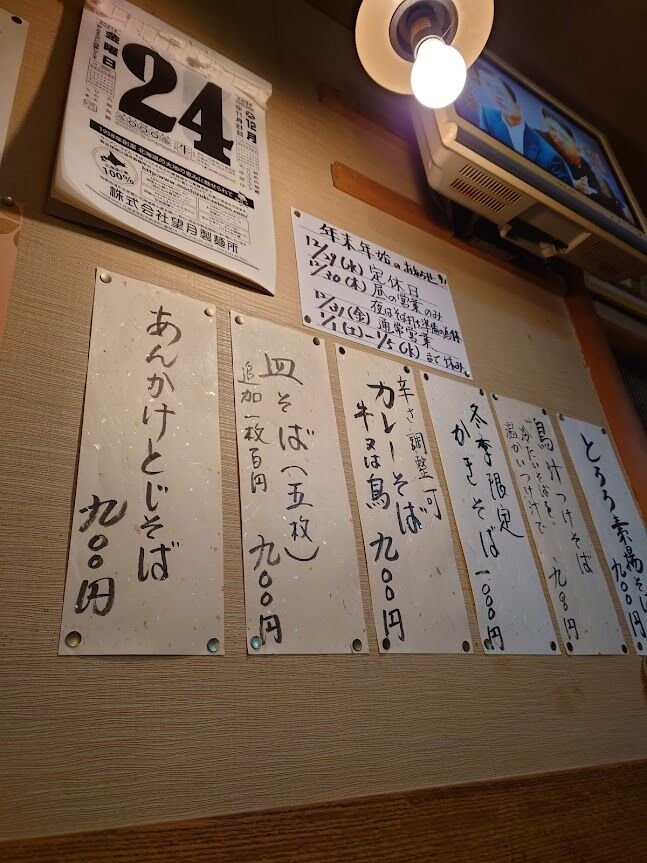 金曜日
24
12月
1938年創業 北海道の大地の恵みに魅せられて
100%
株式会社望月製麺所
年末年始のお知らせ
12/29(水) 定休日
12/30(木) 昼の営業のみ
12/31(金) 通常営業
1/1(土)〜1/5(水)まで休み
あんかけとじそば
九〇〇円
皿そば(五枚)
追加一枚百円
九〇〇円
辛さ調整可
カレーそば
牛又は鳥 九〇〇円
冬季限定
かきそば 一〇〇〇円
鳥汁つけそば
冷たいそばを
温かいつけ汁で
九〇〇円
とろろ素揚そば
九〇〇円